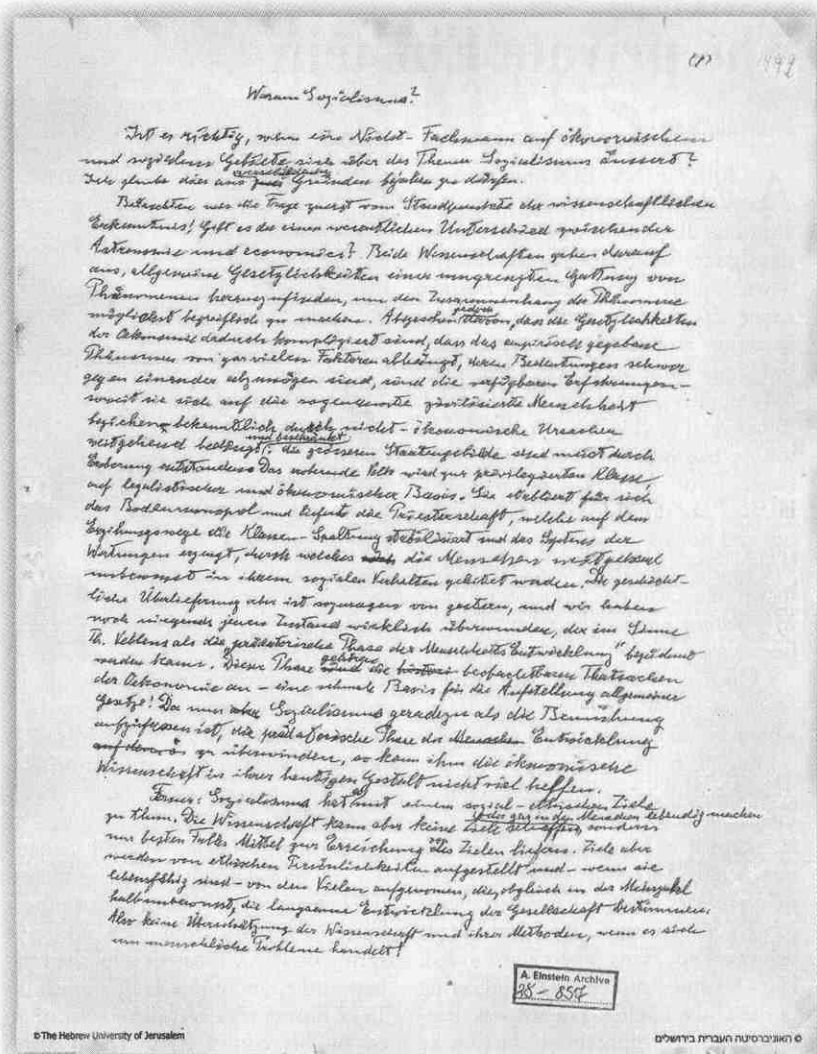 (1)
Warum Sozialismus?
Ist es richtig, wenn ein Nicht-Fachmann auf ökonomischem
und sozialem Gebiete sich über das Thema Sozialismus äussert?
Ich glaube dies aus verschiedenen Gründen bejahen zu dürfen.
Betrachten wir die Frage zuerst vom Standpunkte der wissenschaftlichen
Erkenntnis! Gibt es da einen wesentlichen Unterschied zwischen der
Astronomie und economics? Beide Wissenschaften gehen darauf
aus, allgemeine Gesetzlichkeiten einer umgrenzten Gattung von
Phänomenen herauszufinden, um den Zusammenhang der Phänomene
möglichst begreiflich zu machen. Abgesehen jedoch davon, dass die Gesetzlichkeiten
der Oekonomie dadurch kompliziert sind, dass das empirisch gegebene
Phänomen von gar vielen Faktoren abhängt, deren Bedeutungen schwer
gegen einander abzuwägen sind, sind die verfügbaren Erfahrungen-
soweit sie sich auf die sogenannte zivilisierte Menschheit
beziehen, bekanntlich durch nicht-ökonomische Ursachen
weitgehend bedingt und beschränkt: die grösseren Staatengebilde sind meist durch
Eroberung entstanden. Das erobernde Volk wird zur privilegierten Klasse,
auf legalistischer und ökonomischer Basis. Sie etabliert für sich
das Bodenmonopol und lieferte die Priesterschaft, welche auf dem
Erziehungswege die Klassen-Spaltung stabilisiert und das System der
Wertungen erzeugt, durch welches die Menschen weitgehend
unbewusst in ihrem sozialen Verhalten geleitet werden. Die geschicht-
liche Überlieferung aber ist sozusagen von gestern, und wir haben
noch nirgends jenen Zustand wirklich überwunden, der im Sinne
Th. Veblens als die "prädatorische Phase der Menschheits Entwicklung" bezeichnet
werden kann. Dieser Phase gehören die beobachtbaren Thatsachen
der Oekonomie an - eine schmale Basis für die Aufstellung allgemeiner
Gesetze! Da nun Sozialismus geradezu als die Bemühung
aufzufassen ist, die prädatorische Phase der Menschen Entwicklung
zu überwinden, so kann ihm die ökonomische
Wissenschaft in ihrer heutigen Gestalt nicht viel helfen.
Ferner: Sozialismus hat mit einem sozial-ethischen Ziele
zu thun. Die Wissenschaft kann aber keine Ziele schaffen, oder gar in den Menschen lebendig machen sondern
nur besten Falls Mittel zur Erreichung des Zieles liefern. Ziele aber
werden von ethischen Persönlichkeiten aufgestellt und - wenn sie
lebensfähig sind - von den Vielen aufgenommen, die, obgleich in der Mehrzahl
halbunbewusst, die langsame Entwicklung der Gesellschaft bestimmen.
Also keine Überschätzung der Wissenschaft und ihrer Methoden, wenn es sich
um menschliche Probleme handelt!
A. Einstein Archive
28-857
© The Hebrew University of Jerusalem
© האוניברסיטה העברית בירושלים